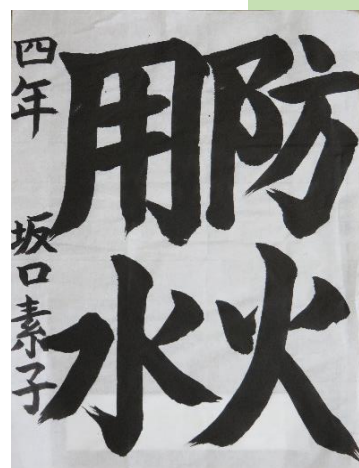 防火
用水
四年 坂口素子